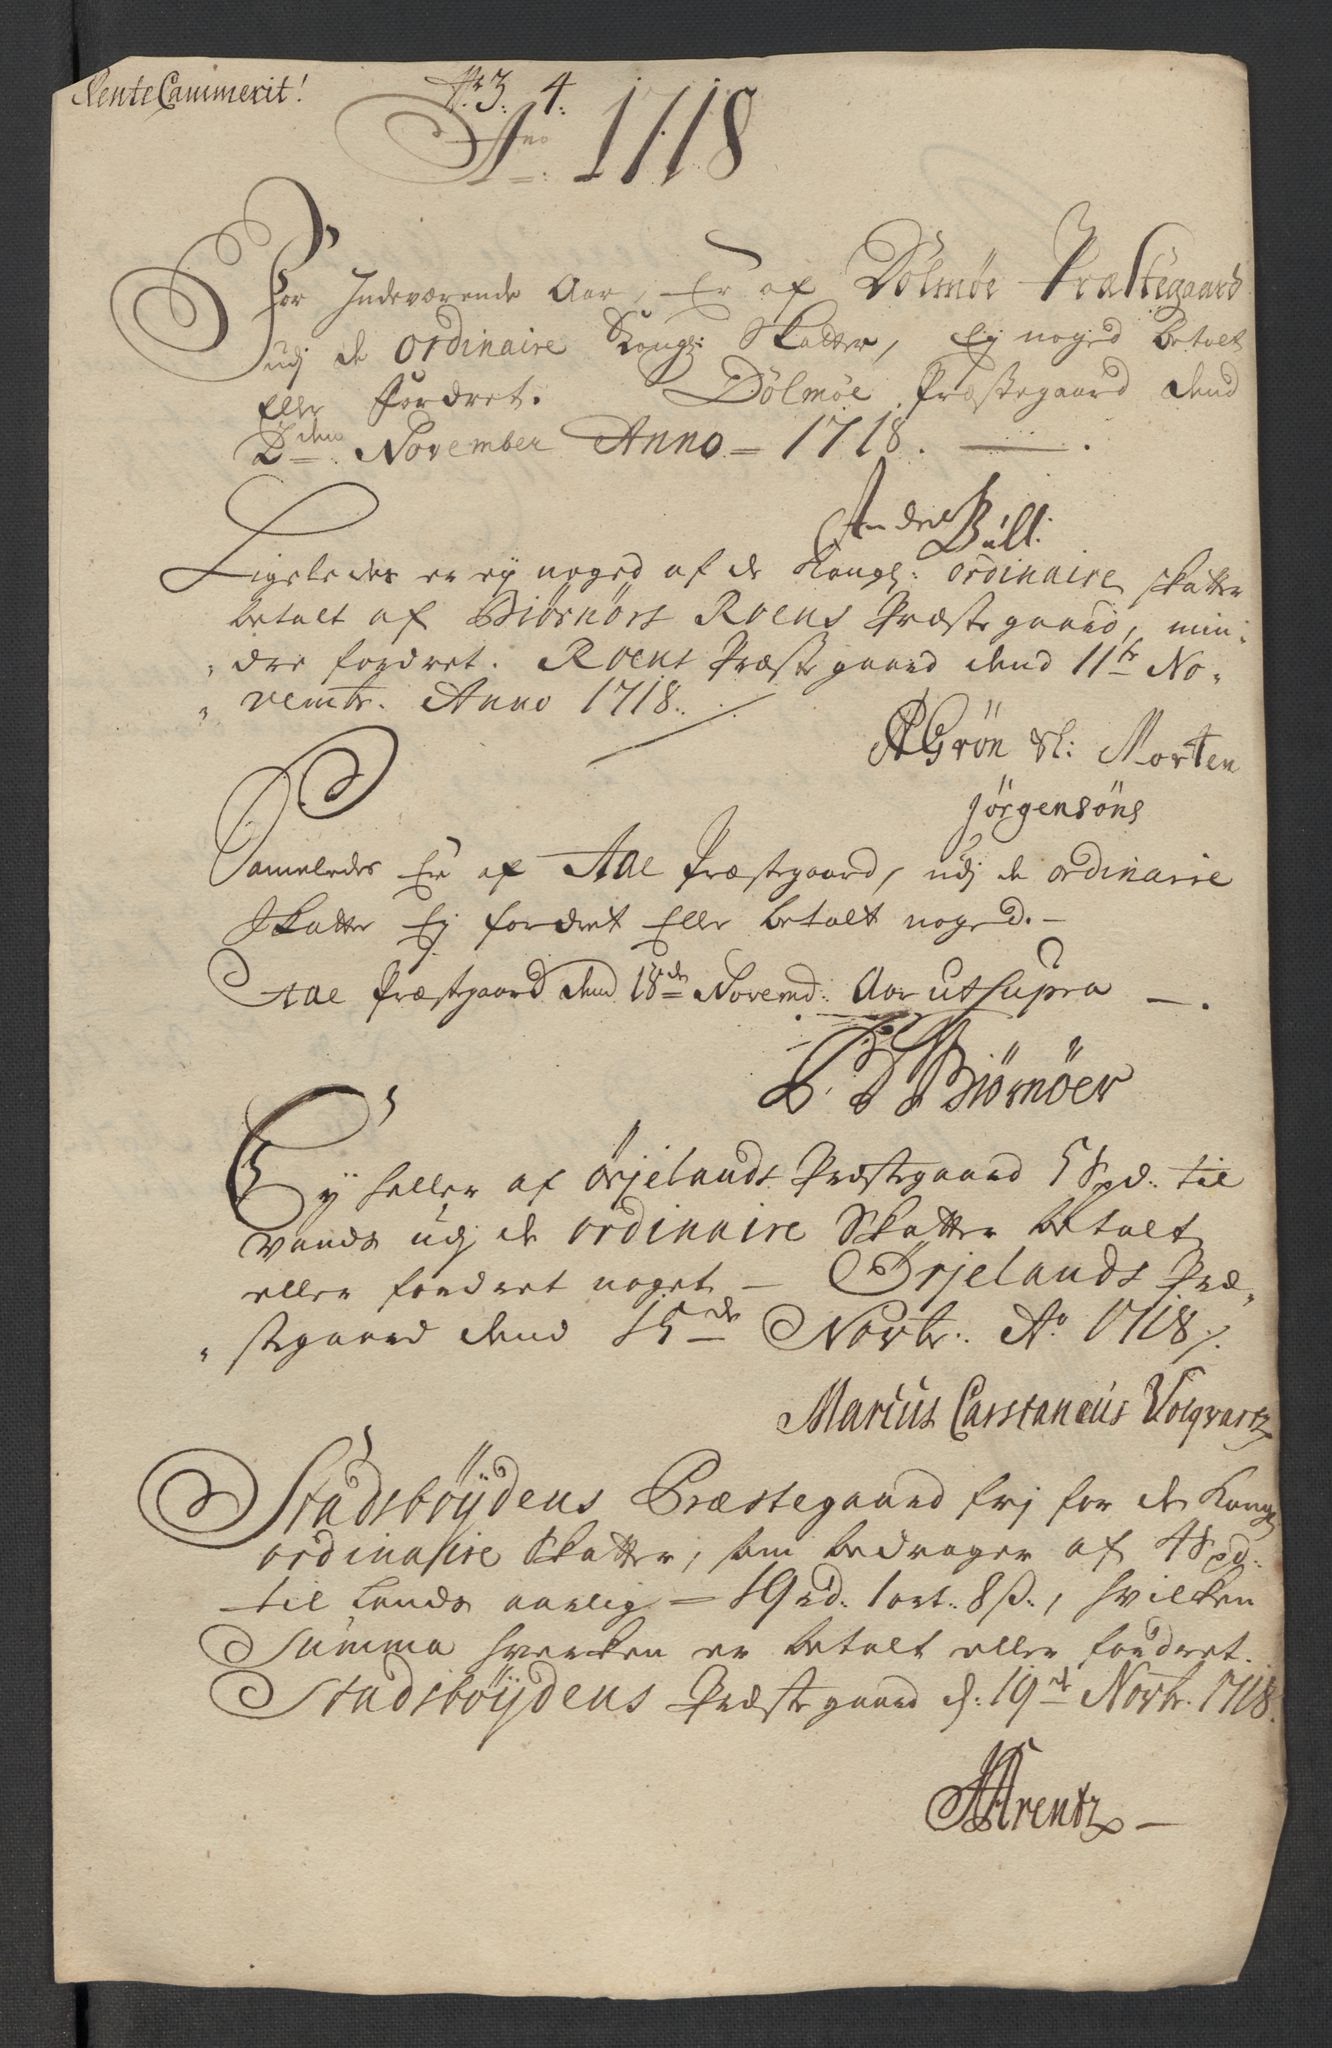 RenteCammerit!
Nr. 3. 4.
Ano 1718
For Indeværende Aar, Er af Dølmøe Præstegaard
udj de ordinaire Kongl: Skatter, Ej noged betalt
Eller fordret. Dølmøe Præstegaard dend
2den November Anno = 1718.
Anders Bull:
Ligeledes er ej noged af de Kongl: ordinaire skatter
betalt af Biørnørs Roens Præstegaard, min:
dre fordret. Roens Præstegaard dend 11te No:
vembr. Anno 1718.
AGrøn Sl: Morten
Jørgensøns
Sameledes Er af Aae Præstegaard, udj de ordinarie
Skatter Ej fordret Eller betalt noged.
Aae Præstegaard dend 18de Novemb: Aar ut supra
Biørnøer
Ey heller af Ørjelands Præstegaard 5 Spd: til
vands udj de ordinaire Skatter betalt
eller fordret noget — Ørjelands Præ,
stegaard dend 15de Novbr: Ao 1718.
Marcus Carstaneus Volqvartz
Stadsbøydens Præstegaard frj for de Kongl
ordinaire Skatter, som bedrager af 4 Spd.
til Lands aarlig = 19 rd. 1 ort. 8 ß., hvilken
Summa hverken er betalt eller fordret.
Stadsbøydens Præstegaard d: 19de Novbr. 1718.
Arentz